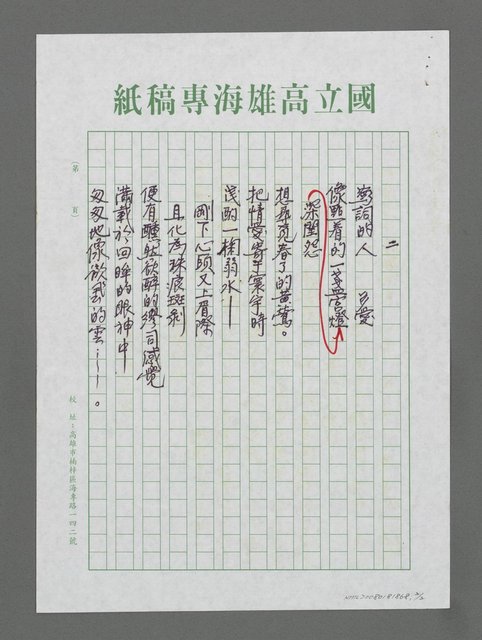 國立高雄海專稿紙
二
詞的人
愛
像點着的一盞宮燈
深閨怨
想尋覓春了的黃鶯。
把情愛寄于寰宇時
淺酌一掬弱水——
剛下心頭又上眉際
且化為珠痕斑剥
便有醺然欲醉的繆司感覺
滿載於回眸的眼神中
匆匆地像欲飛的雲……。
(第 頁)
校 址:高雄市楠梓區海專路一四二號